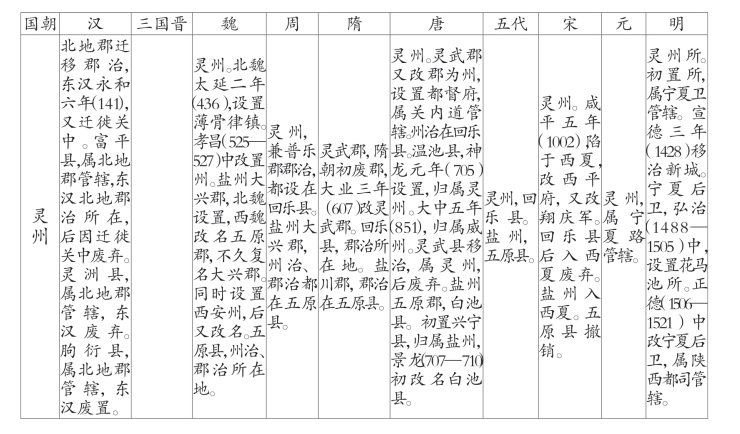 国朝
汉
三国晋
魏
周
隋
唐
五代
宋
元
明
灵
州
北地郡迁
移郡治，
东汉永和
六年(141)，
又迁徙关
中。富平
县，属北地
郡管辖，东
汉北地郡
治所在，
后因迁徙
关中废弃。
灵洲县，
属北地郡
管辖，东
汉废弃。
朐衍县，
属北地郡
管辖，东
汉废置。
灵州。北魏
太延二年
(436)，设置
薄骨律镇。
孝昌(525—
527)中改置
州。盐州大
兴郡，北魏
设置，西魏
改名五原
郡，不久复
名大兴郡。
同时设置
西安州，后
又改名。五
原县，州治、
郡治所在
地。
灵州，
兼普乐
郡郡治，
都设在
回乐县。
盐州大
兴郡，
州治、
郡治都
在五原
县。
灵武郡，隋
朝初废郡，
大业三年
(607)改灵
武郡。回乐
县，郡治所
在地。盐
川郡，郡治
在五原县。
灵州。灵武郡
又改郡为州，
设置都督府，
属关内道管
辖。州治在回乐
县。温池县，神
龙元年(705)
设置，归属灵
州。大中五年
(851)，归属威
州。灵武县移
治，属灵州，
后废弃。盐州
五原郡，白池
县。初置兴宁
县，归属盐州，
景龙(707—710)
初改名白池
县。
灵州，回
乐县。
盐州，
五原县。
灵州。咸
平五年
(1002)陷
于西夏，
改西平
府，又改
翔庆军。
回乐县
后入西
夏废弃。
盐州入
西夏。五
原县撤
销。
灵州，
属宁
夏路
管辖。
灵州所。
初置所，
属宁夏卫
管辖。宣
德三年
(1428)移
治新城。
宁夏后
卫，弘治
(1488—
1505)中，
设置花马
池所。正
德(1506—
1521)中
改宁夏后
卫，属陕
西都司管
辖。